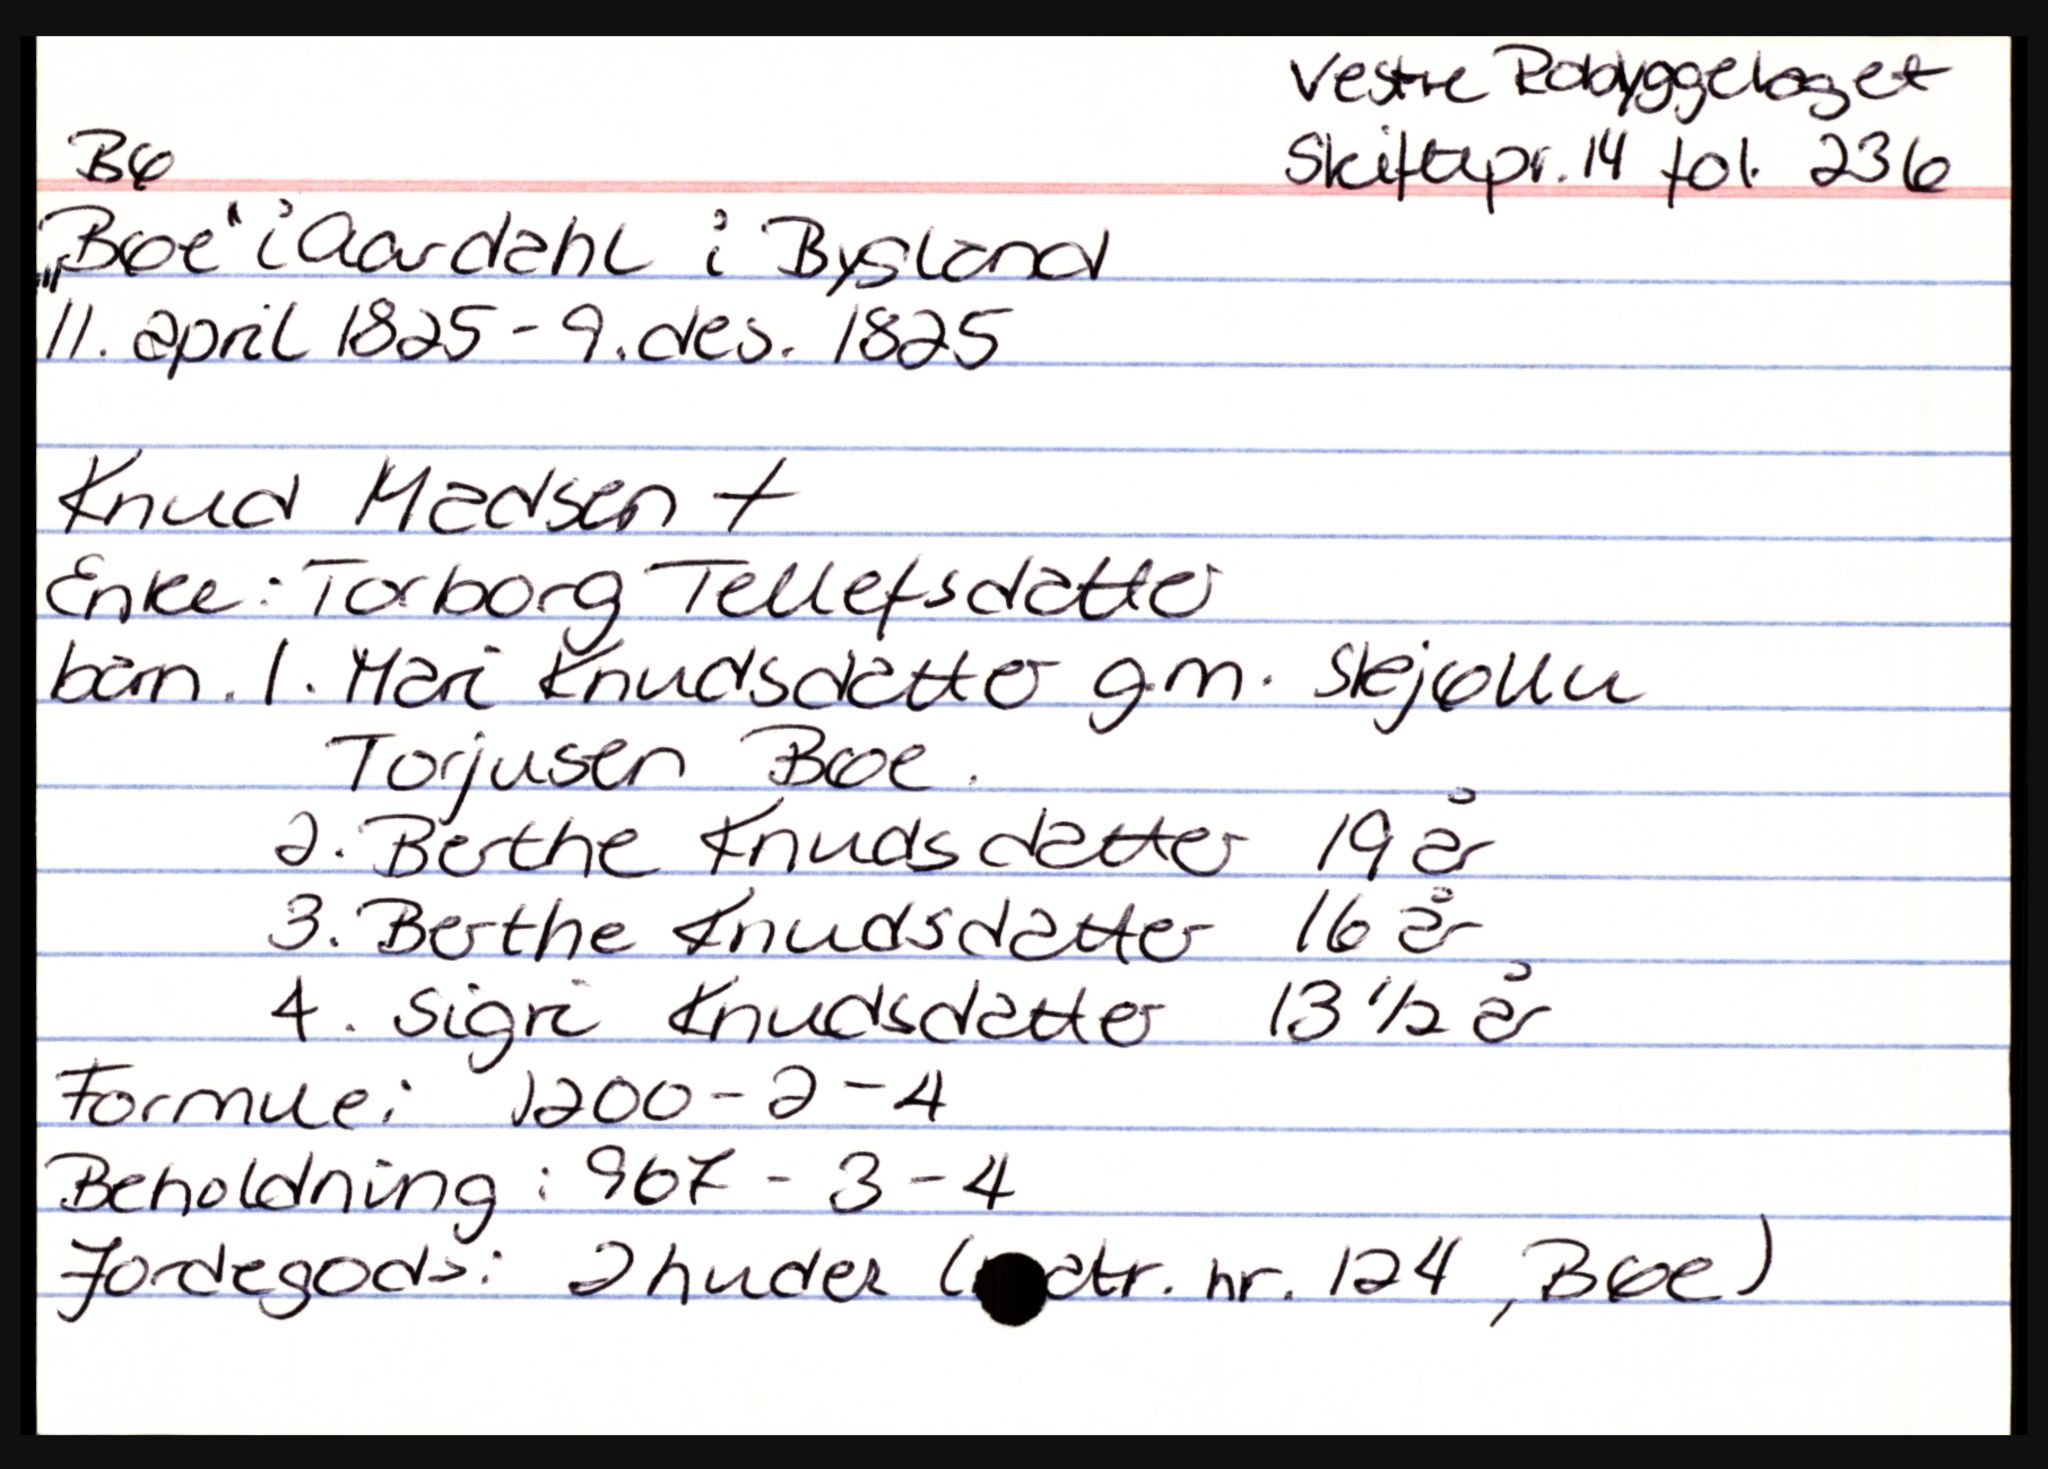 Vestre Robyggelaget
Bø Skiftepr. 14 fol. 236
„Bøe“ i Aardahl i Bygland
11. april 1825 - 9. des. 1825
Knud Madsen +
Enke: Torborg Tellefsdatter
barn. 1. Mari Knudsdatter gm. Skjøllu
Torjusen Bøe.
2. Berthe Knudsdatter 19 år
3. Berthe Knudsdatter 16 år
4. Sigri Knudsdatter 13 1/2 år
Formue: 1200 - 2 - 4
Beholdning: 967 - 3 - 4
Jordegods: 2 huder (matr. nr. 124, Bøe)